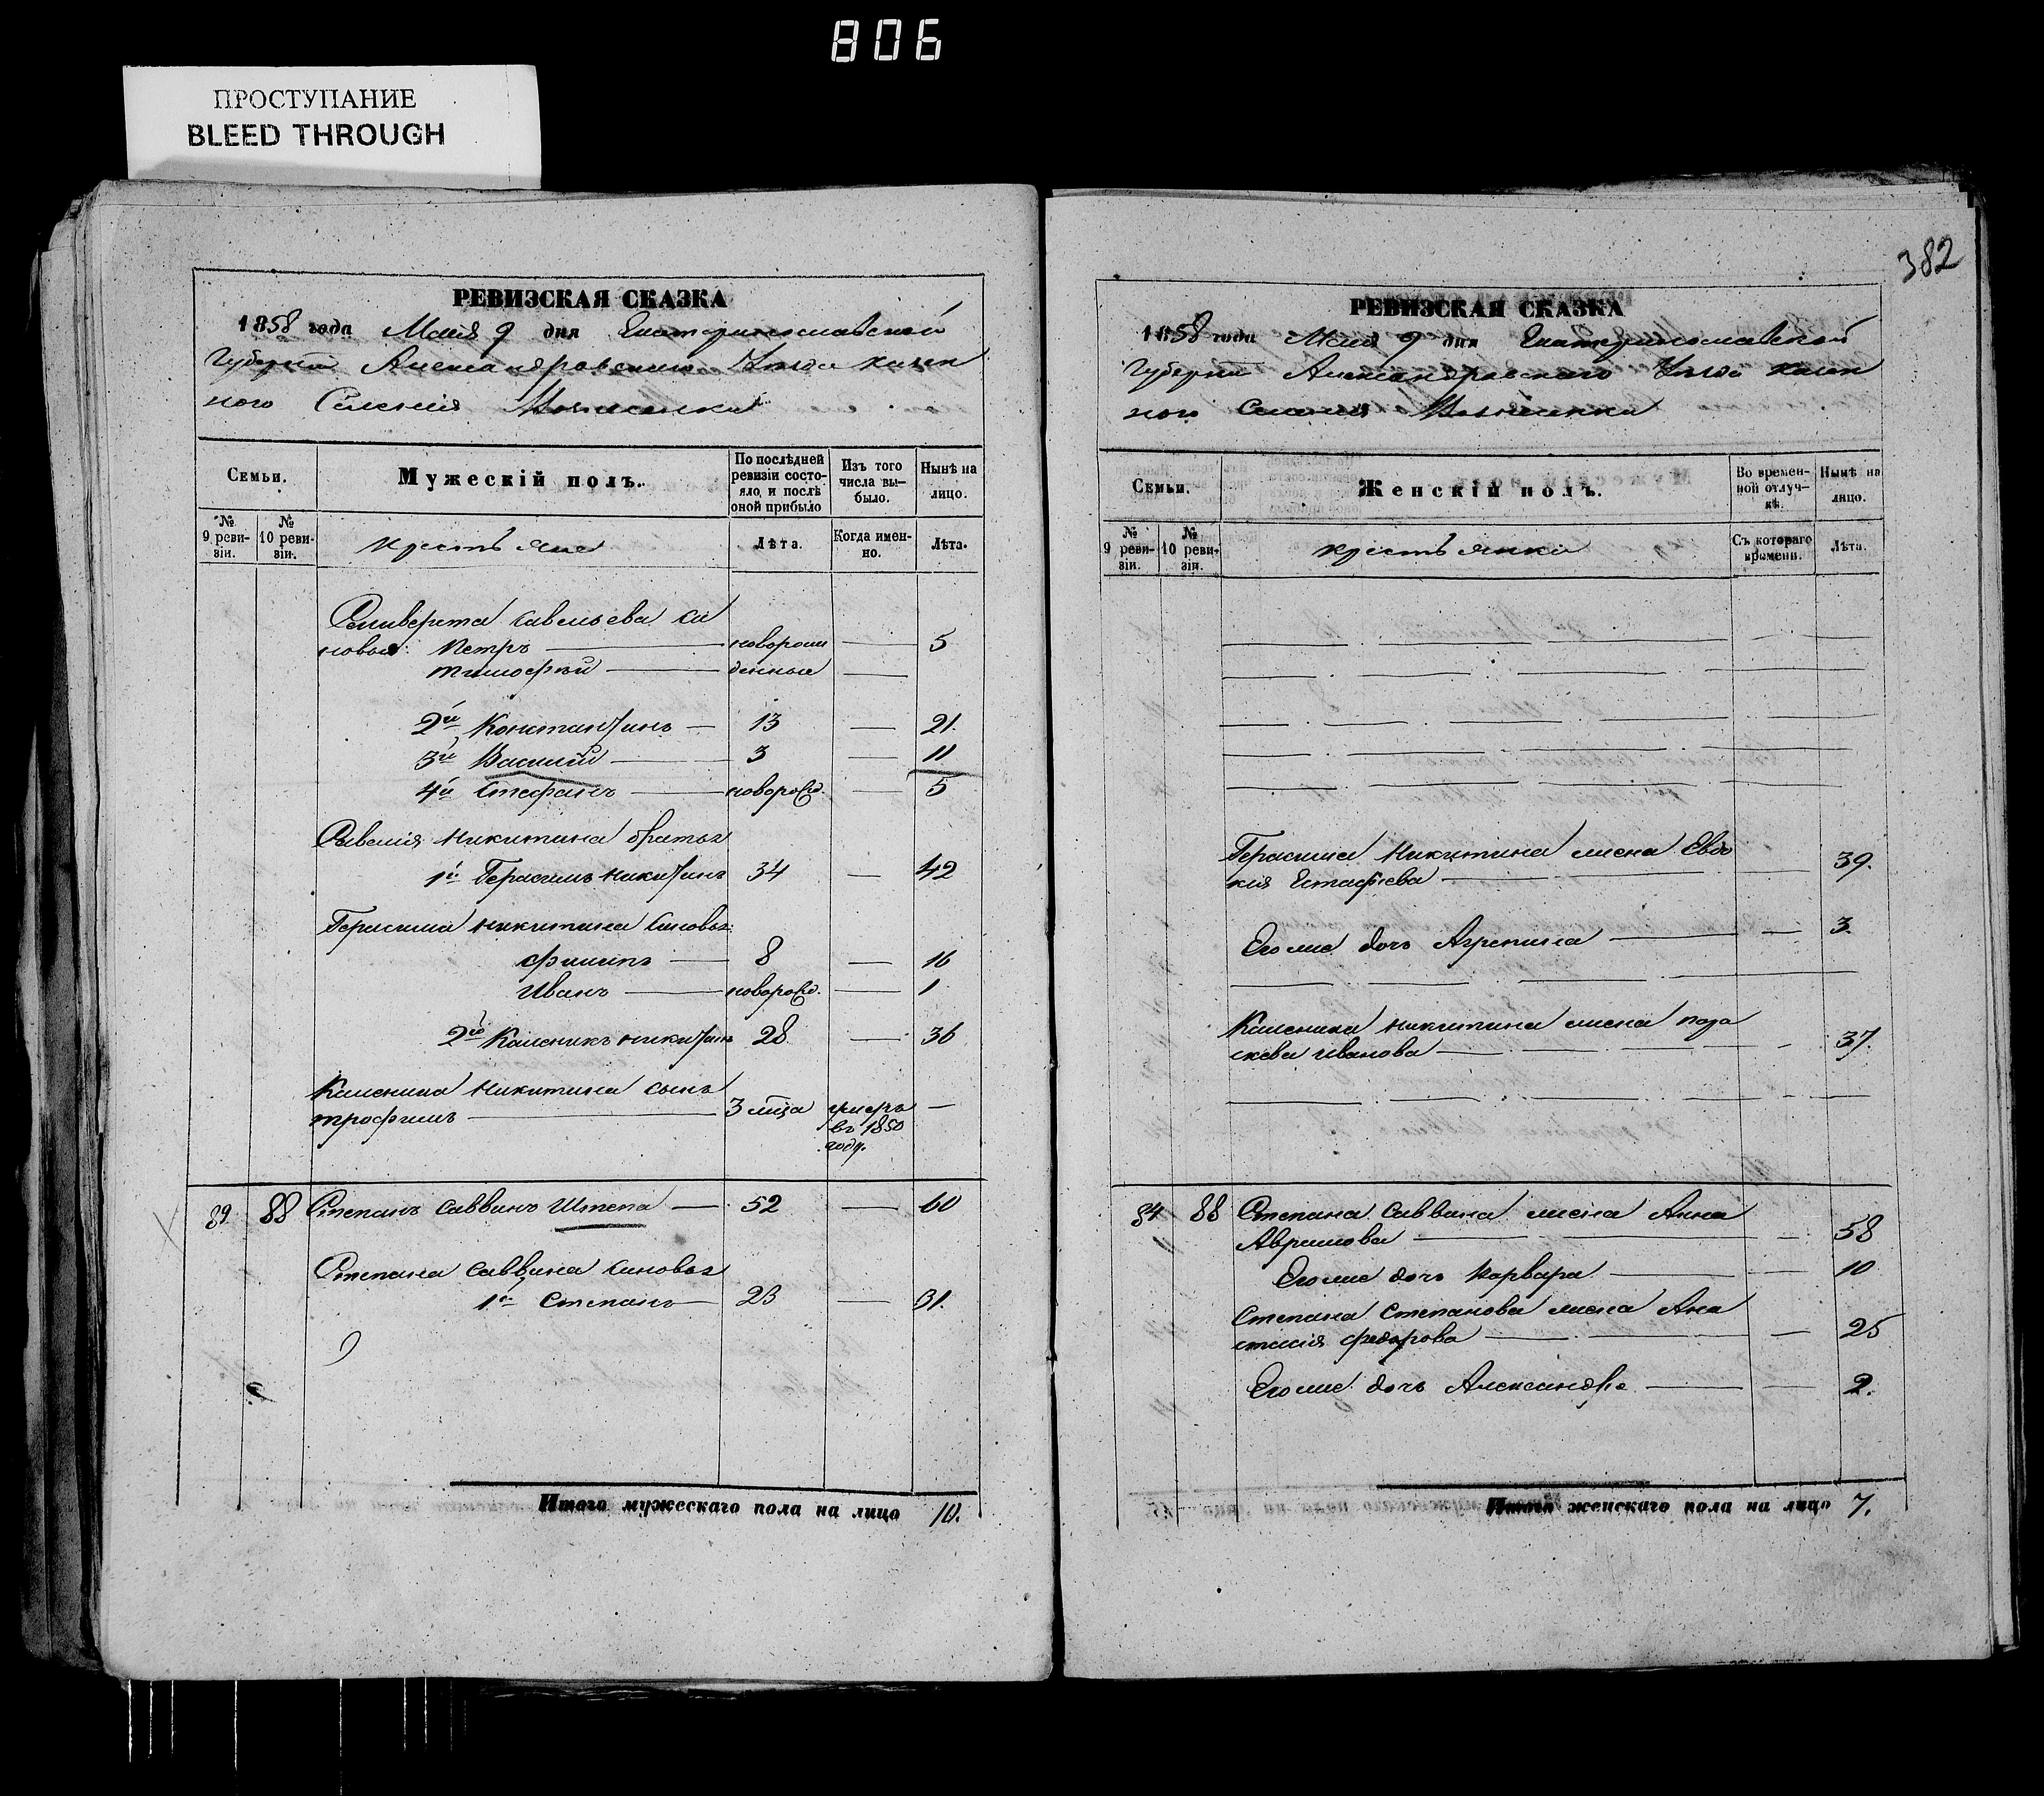 806
ПРОСТУПАНИЕ
BLEED THROUGH
РЕВИЗСКАЯ СКАЗКА
1858 года Мая 9 дня Екатеринославской
Губерніи Александровскаго Уѣзда казен
ного Селенія
Семьи.
Мужескій полъ.
По послѣдней ревизіи состояло, и послѣ оной прибыло
Изъ того числа выбыло.
Нынѣ на лицо.
№ 9 ревизіи.
№ 10 ревизіи.
Крестьяне
Лѣта.
Когда именно.
Лѣта.
Селиверста Савельева сы
новья: Петръ — новорож — 5
Тимофей — денные —
2й Константинъ — 13 — 21.
3й Василій — 3 — 11
4й Стефанъ — новорожд. — 5
Савелія Никитина братья
1й Герасимъ Никитинъ 34 — 42
Герасима Никитина сыновья:
Филипъ — 8 — 16
Иванъ — новорожд. — 1
2й Каленикъ Никитинъ 28 — 36
Каленика Никитина сынъ
Трофимъ — 3 мѣца умеръ —
въ 1850
году.
89 88 Степанъ Саввинъ Штепа — 52 — 60
Степана Саввина сыновья
1й Степанъ — 23 — 31.
Итого мужескаго пола на лицо 10.
382
РЕВИЗСКАЯ СКАЗКА
1858 года Мая 9 дня Екатеринославской
Губерніи Александровскаго Уѣзда казен
ного Селенія
Семьи.
Женскій полъ.
Во временной отлучкѣ.
Нынѣ на лицо.
№ 9 ревизіи.
№ 10 ревизіи.
Крестьянки
Съ котораго времени.
Лѣта.
Герасима Никитина жена Евдо
кія Естафіева — 39.
Его же дочь Агрепина — — 3.
Каленика Никитина жена Пара
скева Иванова — — 37.
84 88 Степана Саввина жена Анна
Аврамова — — 58
Его же дочь Варвара — — 10
Степана Степанова жена Ана
стасія Федорова — — 25
Его же дочь Александра — — 2.
Итого женскаго пола на лицо 7.